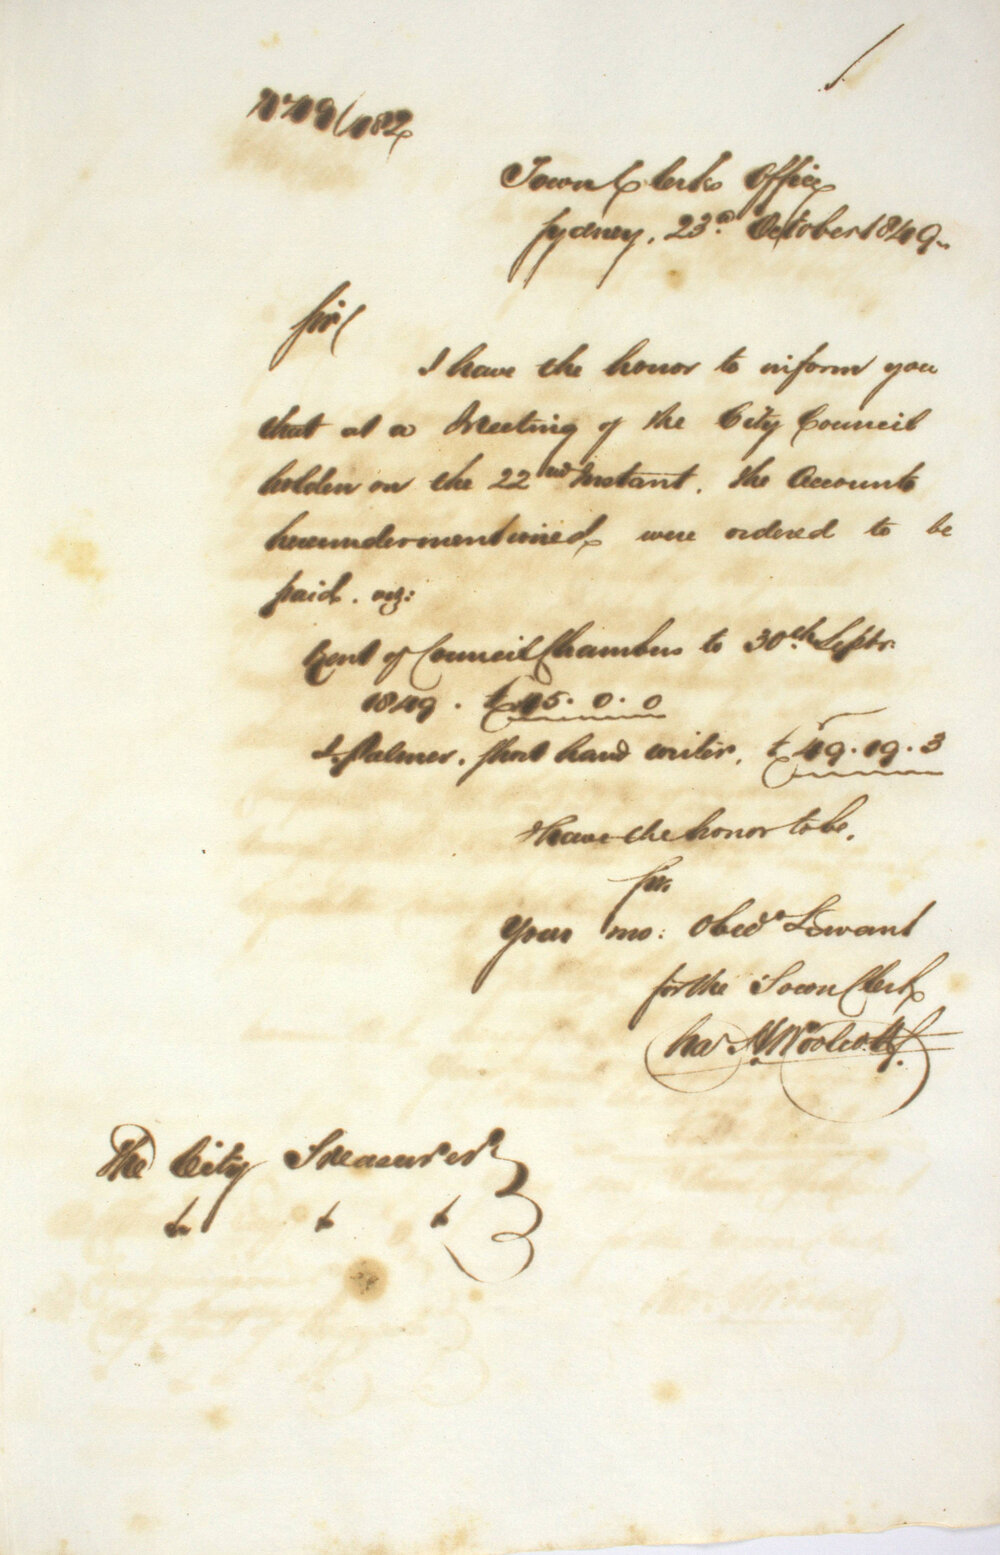 No 49/182
Town Clerks Office
Sydney, 23d October 1849
Sir
I have the honor to inform you
that at a Meeting of the City Council
holden on the 22nd Instant, the Accounts
hereundermentioned were ordered to be
paid. viz:
Rent of Council Chambers to 30th Septr.
1849. £45.0.0
Palmer, Short hand writer, £49.19.3
I have the honor to be,
Sir,
Your mo: Obedt Servant
for the Town Clerk
Chas H Woolcott
The City Treasurer